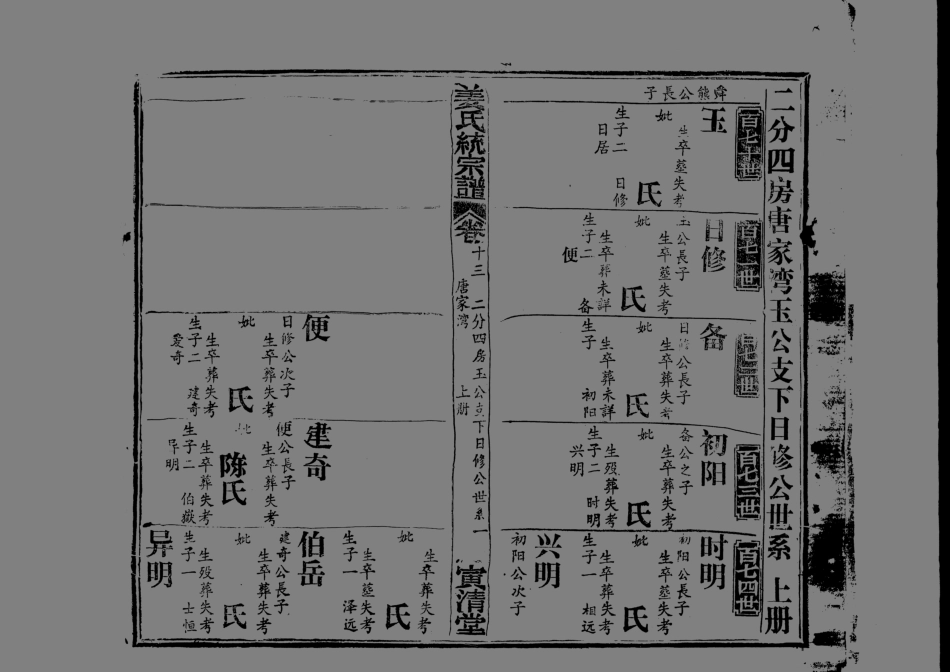 二分四房唐家湾玉公支下日修公世系 上册
百七十世
舜熊公長子
玉
生卒墓失考
妣 氏
生子二 日修
日居
百七一世
日修
玉公長子
生卒墓失考
妣 氏
生卒葬未詳
生子二 备
便
备
日修公長子
生卒墓失考
妣 氏
生卒葬未詳
生子 初阳
百七三世
初阳
备公之子
生卒墓失考
妣 氏
生殁葬失考
生子二 时明
兴明
百七四世
时明
初阳公長子
生卒墓失考
妣 氏
生卒葬失考
生子一 相远
兴明
初阳公次子
姜氏統宗譜 卷十三 二分四房玉公支下日修公世系一
唐家湾 上册
寅清堂
生卒葬失考
妣 氏
生卒墓失考
生子一 泽远
便
日修公次子
生卒葬失考
妣 氏
生卒葬失考
生子二 建奇
爱奇
建奇
便公長子
生卒葬失考
妣 陈氏
生卒葬失考
生子二 伯嶽
异明
伯岳
建奇公長子
生卒葬失考
妣 氏
生殁葬失考
生子一 士恒
异明